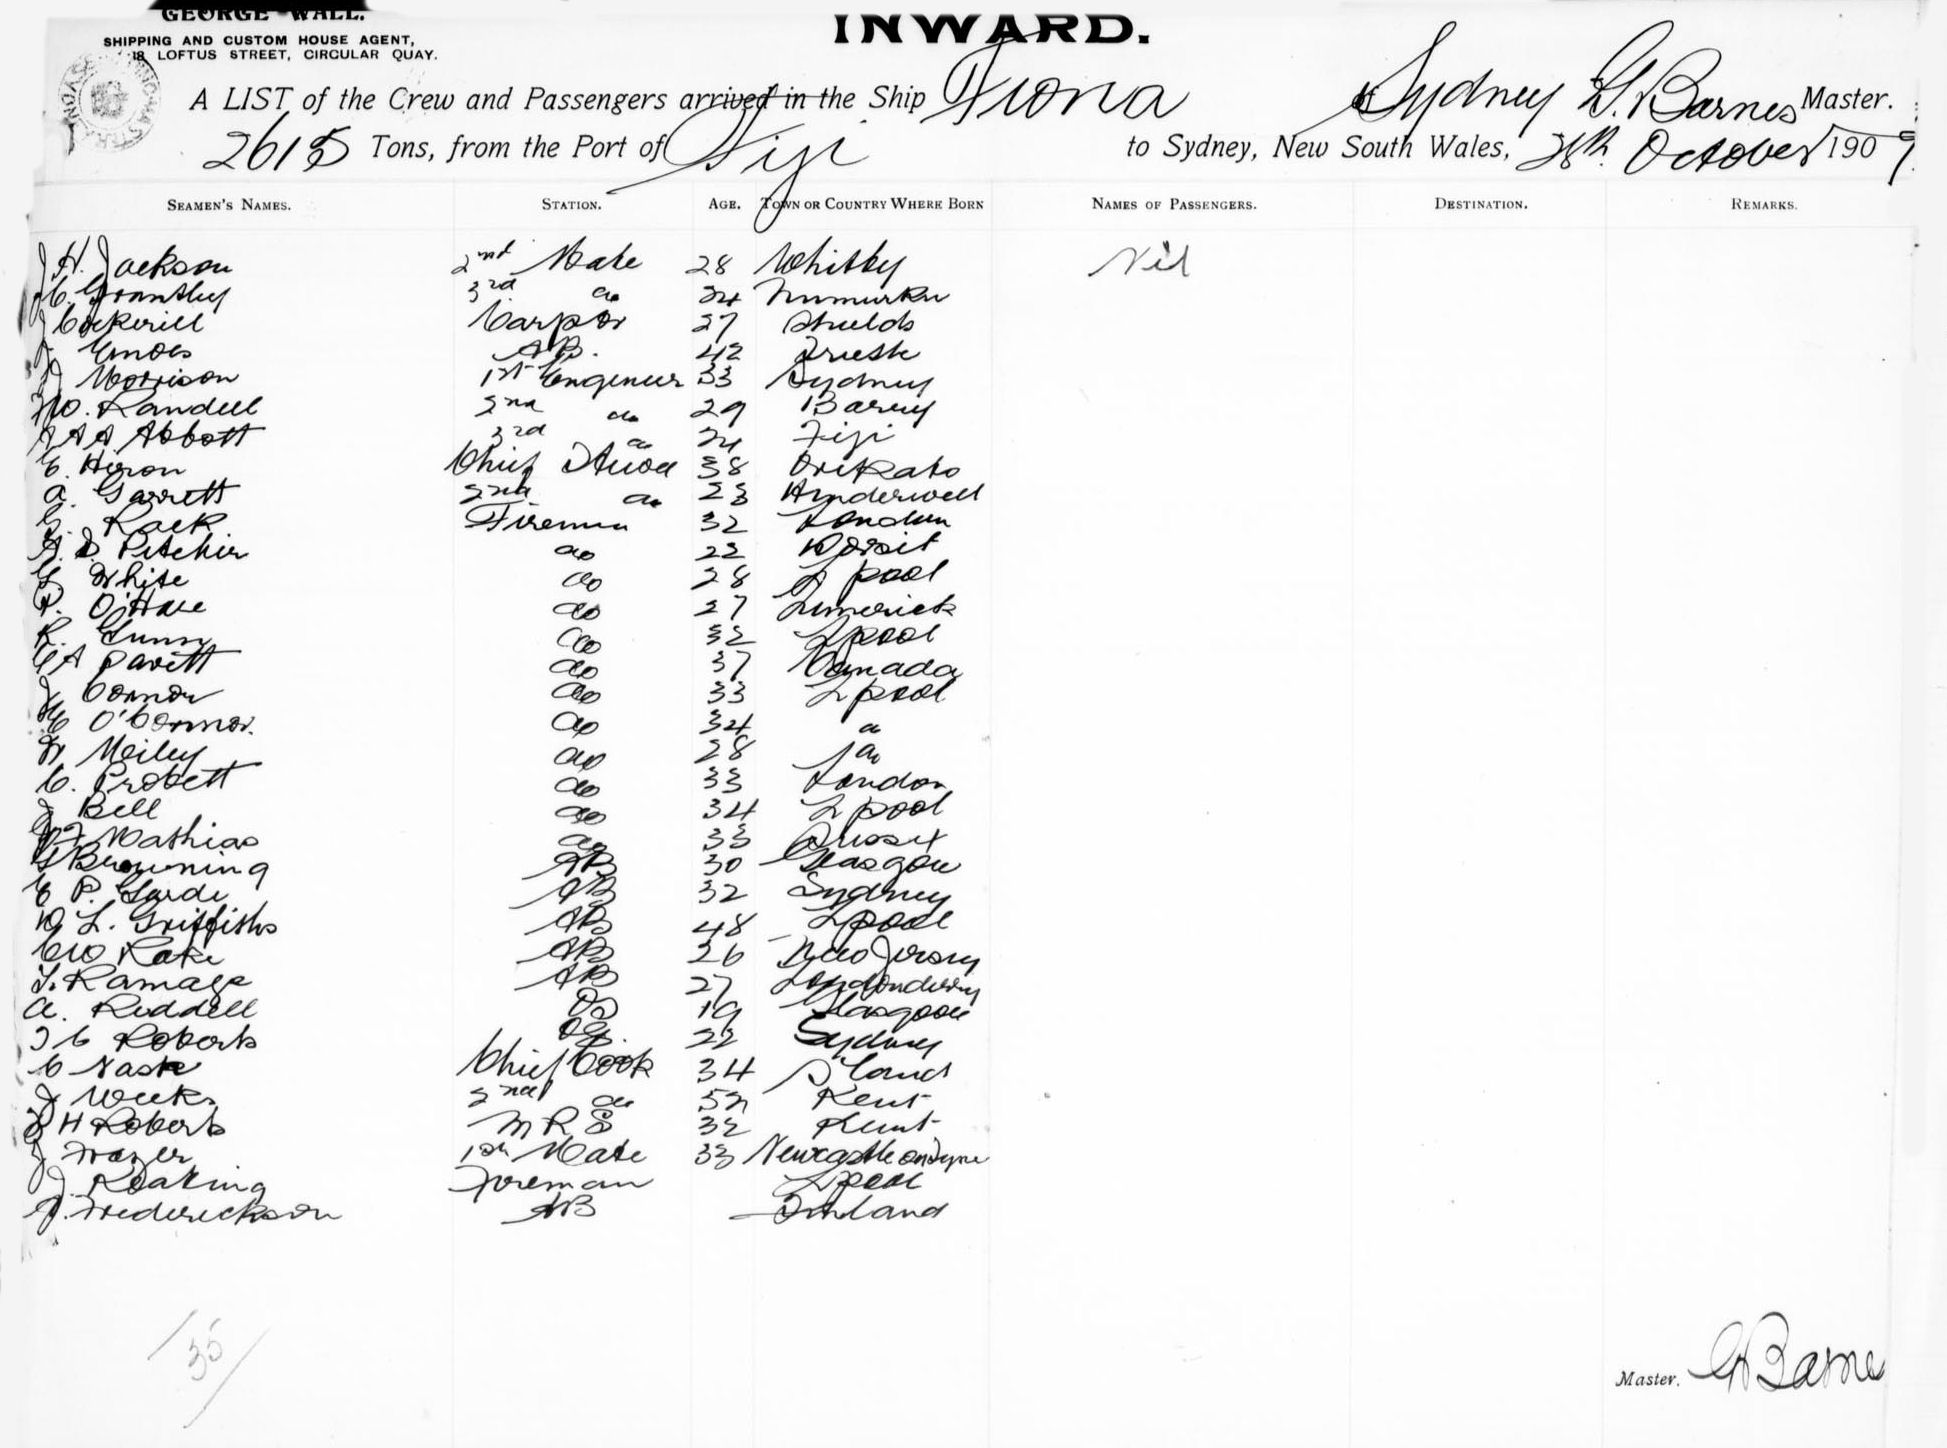 GEORGE WALL.
SHIPPING AND CUSTOM HOUSE AGENT,
LOFTUS STREET, CIRCULAR QUAY.
INWARD.
A LIST of the Crew and Passengers arrived in the Ship Fiona of Sydney G. Barnes Master.
2615 Tons, from the Port of Fiji to Sydney, New South Wales, 28th October 1909
SEAMEN'S NAMES. STATION. AGE. TOWN OR COUNTRY WHERE BORN NAMES OF PASSENGERS. DESTINATION. REMARKS.
J H. Jackson 2nd Mate 28 Whitby Nil
Granthy 3rd do 24 Numurka
J Cockerill Carptr 27 Shields
A.B. 42 Trieste
J Morrison 1st Engineer 33 Sydney
W. Randell 2nd do 29 Barry
A A Abbott 3rd do 24 Fiji
E. Heron Chief 38
A. Garrett 2nd do 23 Hynderwell
G. Rack Fireman 32 London
Pitcher do 22 Dorsit
G. White do 28 L pool
P. O'Hare do 27 Limerick
R. Gunn do 32 Lpool
A Pavitt do 37 Canada
J Connor do 33 L pool
O'Connor. do 34 do
Meiley do 28 do
C. Probett do 33 London
J Bell do 34 L pool
F Mathias do 33 Sussex
G Browning AB 30 Glasgow
E P. Garde AB 32 Sydney
D L. Griffiths AB 48 Lpool
C W Rake AB 26 New Jersey
T. Ramage AB 27 Londonderry
A. Reddell OS 19 Glasgow
J C Roberts OS 22 Sydney
C Nash Chief Cook 34
J Weeks 2nd do 52 Kent
H Roberts M R S 32 Kent
J Frazer 1st Mate 33 Newcastle on Tyne
J. Keating Foreman Lpool
Frederickson AB Finland
35
Master. G Barnes